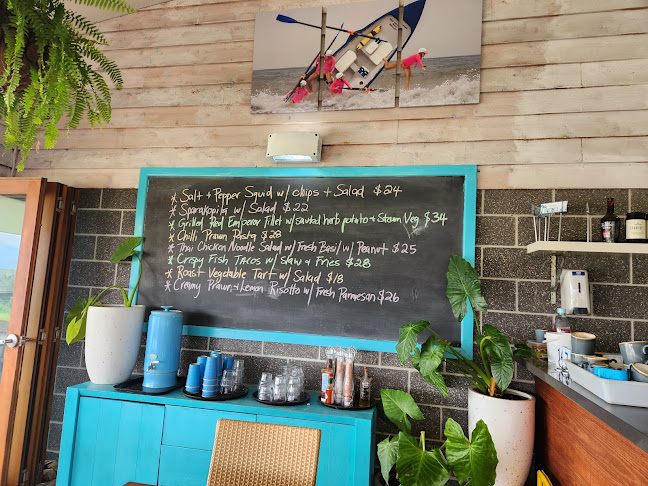 * Salt + Pepper Squid w/ chips + Salad $24
* Spanakopita w/ Salad $22
* Grilled Red Emperor Fillet w/ sauted herb potato + Steam Veg $34
* Chilli Prawn Pasta $28
* Thai Chicken Noodle Salad w/ Fresh Basil w/ Peanut $25
* Crispy Fish Tacos w/ slaw & Fries $28
* Roast Vegetable Tart w/ Salad $18
* Creamy Prawn + Lemon Risotto w/ Fresh Parmesan $26